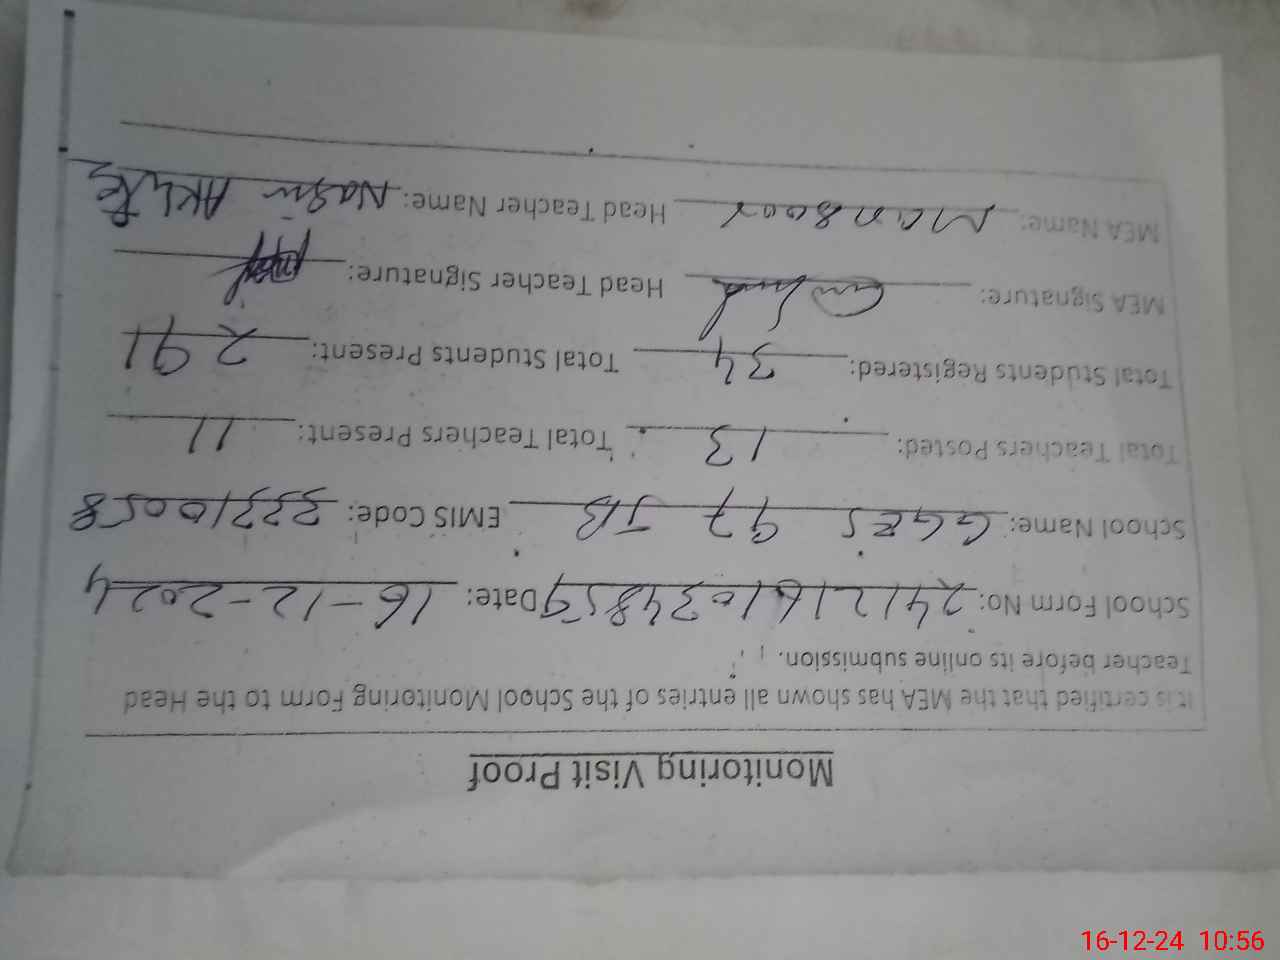 Monitoring Visit Proof
It is certified that the MEA has shown all entries of the School Monitoring Form to the Head
Teacher before its online submission.
School Form No: 241216103 4859 Date: 16-12-2024
School Name: GGES 97 JB EMIS Code: 33310058
Total Teachers Posted: 13 Total Teachers Present: 11
Total Students Registered: 34 Total Students Present: 291
MEA Signature: Head Teacher Signature:
MEA Name: Mansoor Head Teacher Name:
16-12-24 10:56